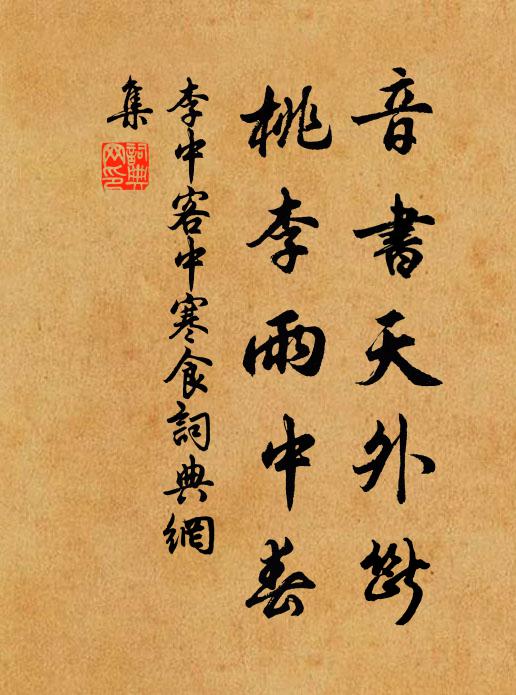 音書天外斷
桃李雨中春
李中客中寒食詞典網
集
詞典
网印